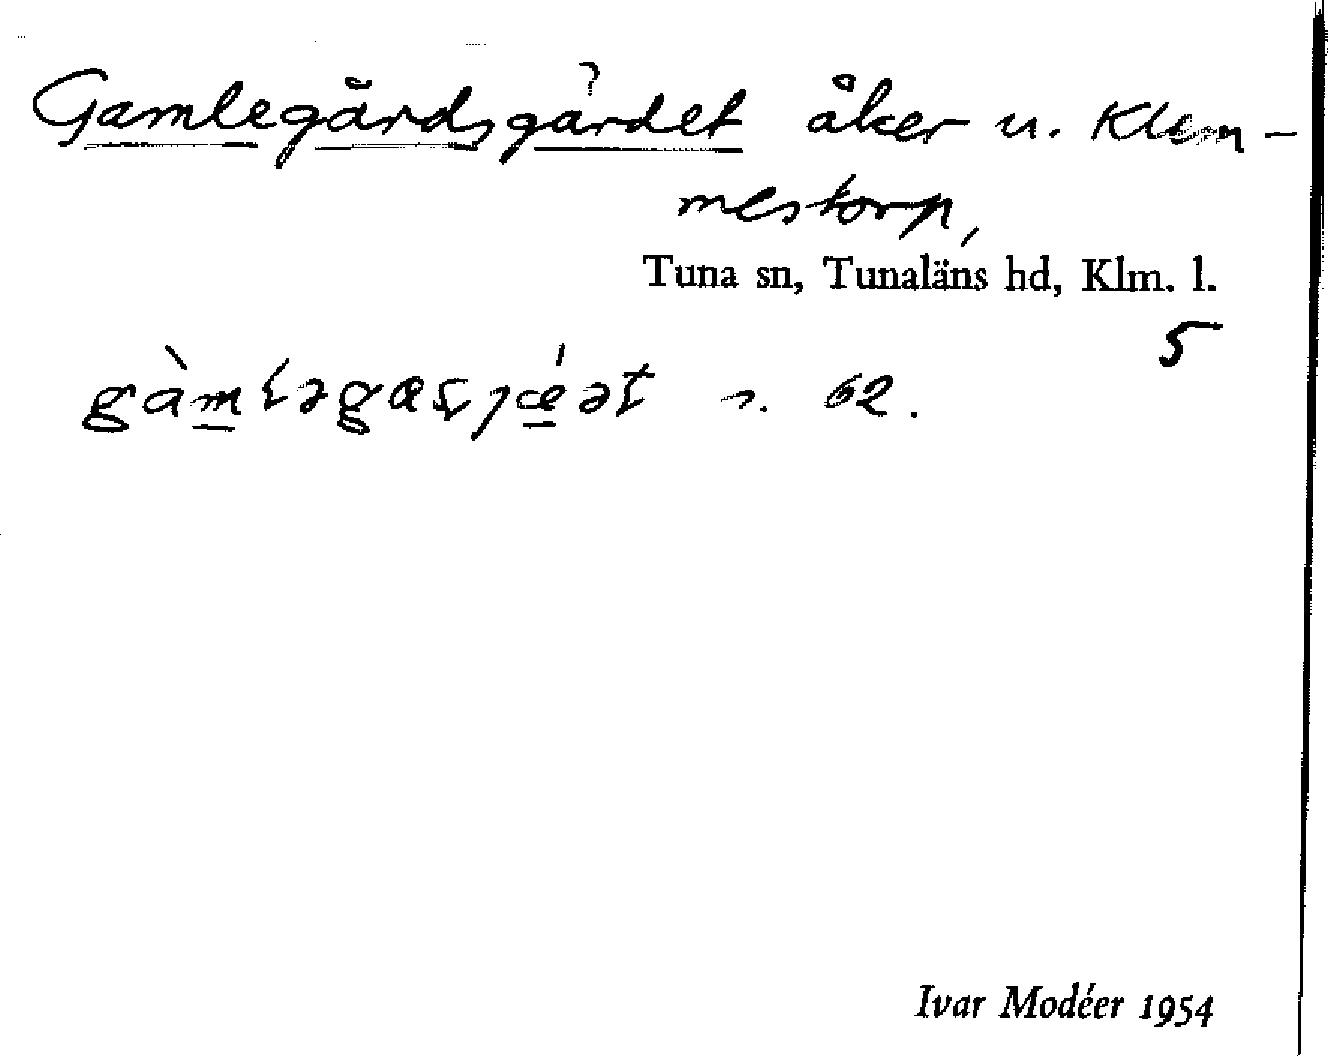 Gamlegårdsgärdet åker u. Klem-
mestorp,
Tuna sn, Tunaläns hd, Klm. l.
5
s. 62.
Ivar Modéer 1954